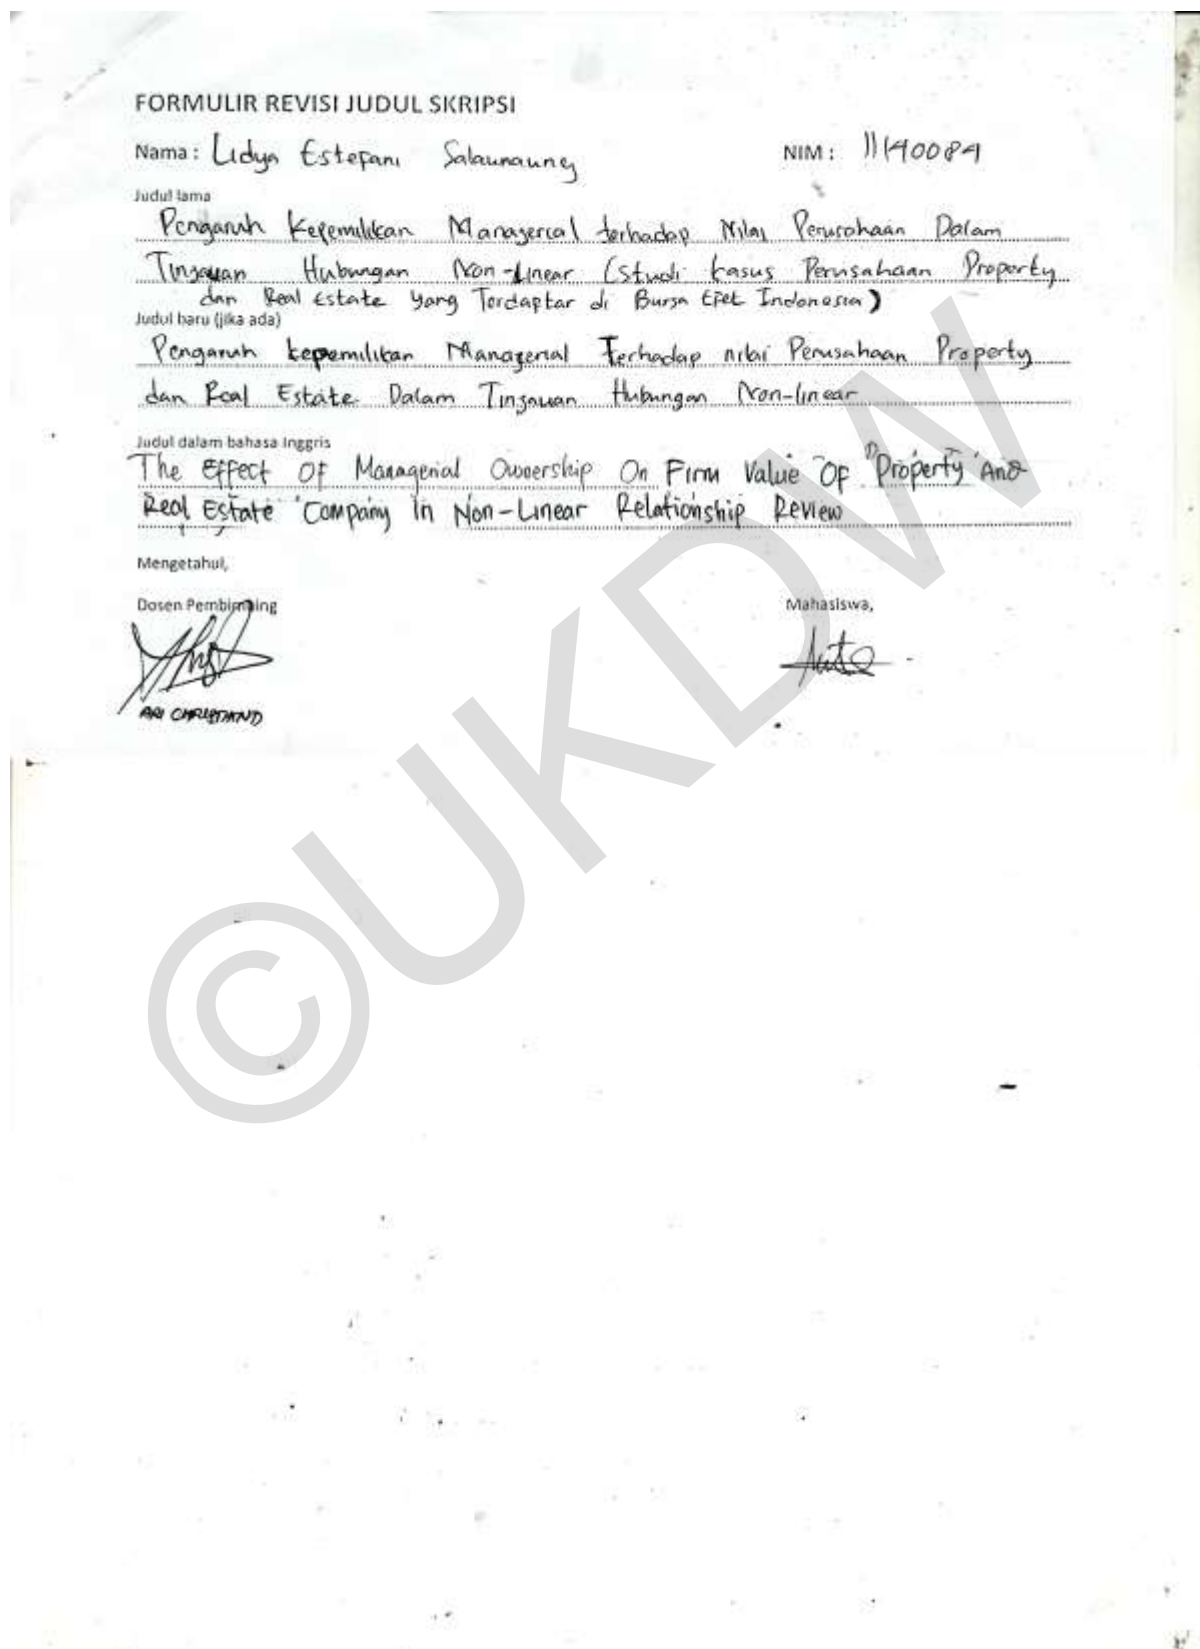 FORMULIR REVISI JUDUL SKRIPSI
Nama : Lidya Estefani Salaunaung NIM : 11140084
Judul lama
Pengaruh Kepemilikan Managerial terhadap Nilai Perusahaan Dalam
Tinjauan Hubungan Non-Linear (Studi kasus Perusahaan Property
dan Real Estate yang Terdaftar di Bursa Efek Indonesia)
Judul baru (jika ada)
Pengaruh kepemilikan Managerial Terhadap nilai Perusahaan Property
dan Real Estate Dalam Tinjauan Hubungan Non-linear
Judul dalam bahasa Inggris
The Effect Of Managerial Ownership On Firm Value Of Property And
Real Estate Company In Non-Linear Relationship Review
Mengetahui,
Dosen Pembimbing Mahasiswa,
ARI CHRISTIANTO
©UKDW